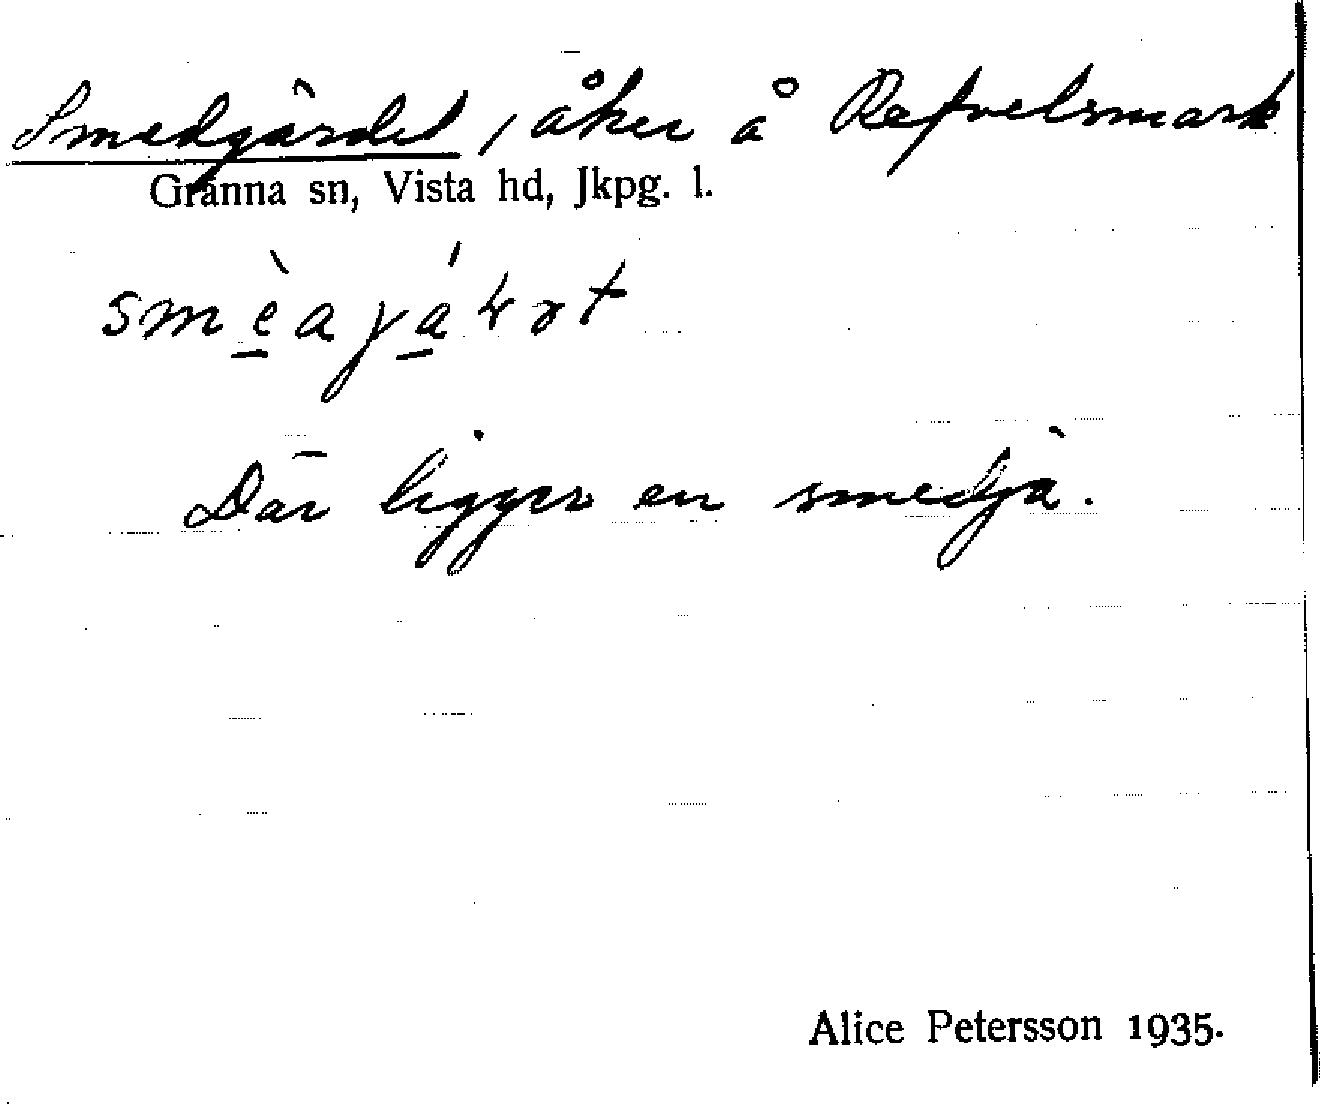 Smedgärdet, åker å Refvelsmark
Gränna sn, Vista hd, Jkpg. l.
Där ligger en smedja.
Alice Petersson 1935.